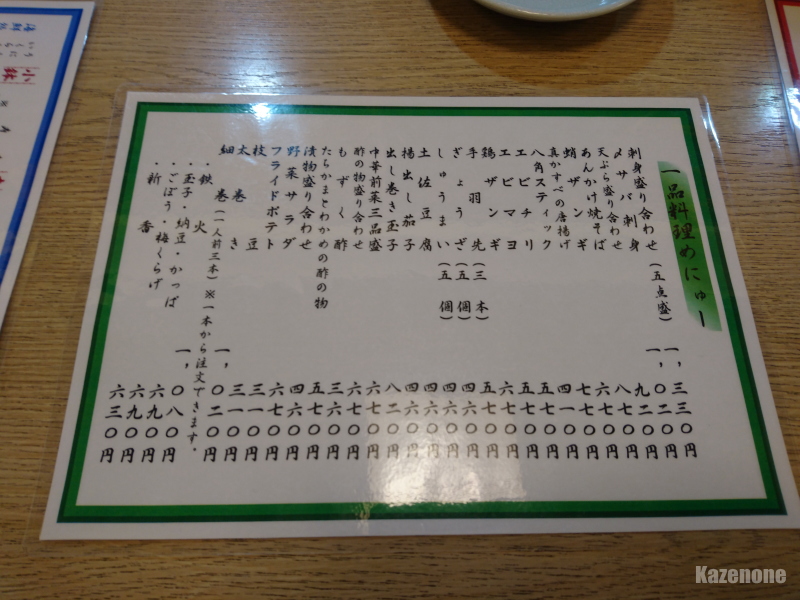 一品料理めにゅー
刺身盛り合わせ(五点盛) 一,三三〇円
〆サバ刺身 一,〇二〇円
天ぷら盛り合わせ 九二〇円
あんかけ焼そば 八七〇円
蛸ザンギ 六七〇円
真かすべの唐揚げ 七七〇円
八角スティック 四一〇円
エビチリ 五七〇円
エビマヨ 五七〇円
鶏ザンギ 六七〇円
手羽先(三本) 五七〇円
ぎょうざ(五個) 四六〇円
しゅうまい(五個) 四六〇円
土佐豆腐 四六〇円
揚出し茄子 四六〇円
出し巻き玉子 八二〇円
中華前菜三品盛 六七〇円
酢の物盛り合わせ 六七〇円
もずく酢 三六〇円
たちかまとわかめの酢の物 五七〇円
漬物盛り合わせ 四六〇円
野菜サラダ 六七〇円
フライドポテト 三一〇円
枝豆 三一〇円
太巻き 一,〇二〇円
細巻(一人前三本)※一本から注文できます。
・鉄火 一,〇八〇円
・玉子・納豆・かっぱ 六九〇円
・ごぼう・梅くらげ 六九〇円
・新香 六三〇円
Kazenone